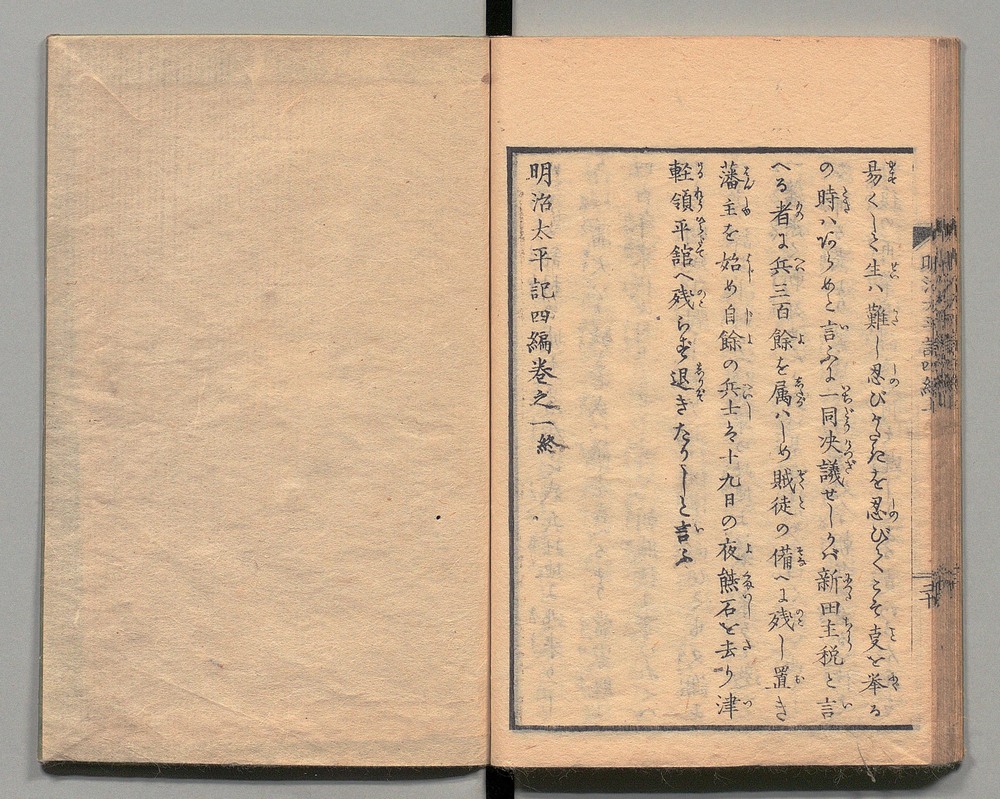 易くして生ハ難し忍びがたきを忍びてこそ事を挙る
の時ハあらめと言ふに一同决議せしかバ新田主税と言
へる者に兵三百餘を属ハしめ賊徒の備へに残し置き
藩主を始め自餘の兵士を十九日の夜熊石を去り津
軽領平舘へ残らず退きたりしと言ふ
明治太平記四編巻之一終
明治太平記四編